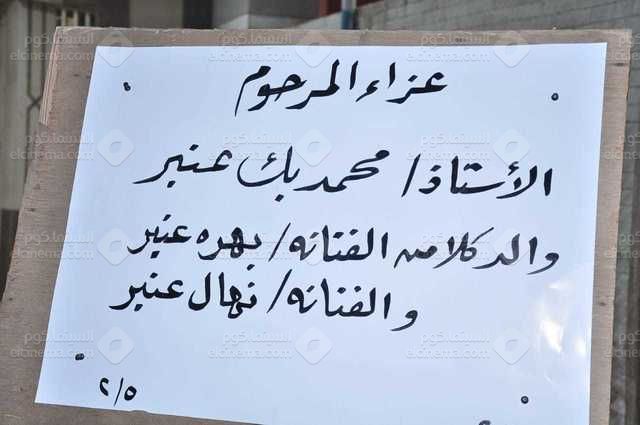 عزاء المرحوم
الأستاذ/ محمد بك عنبر
والد كلا من الفنانه/ بهره عنبر
والفنانه/ نهال عنبر
٢/٥
السينما.كوم
elcinema.com